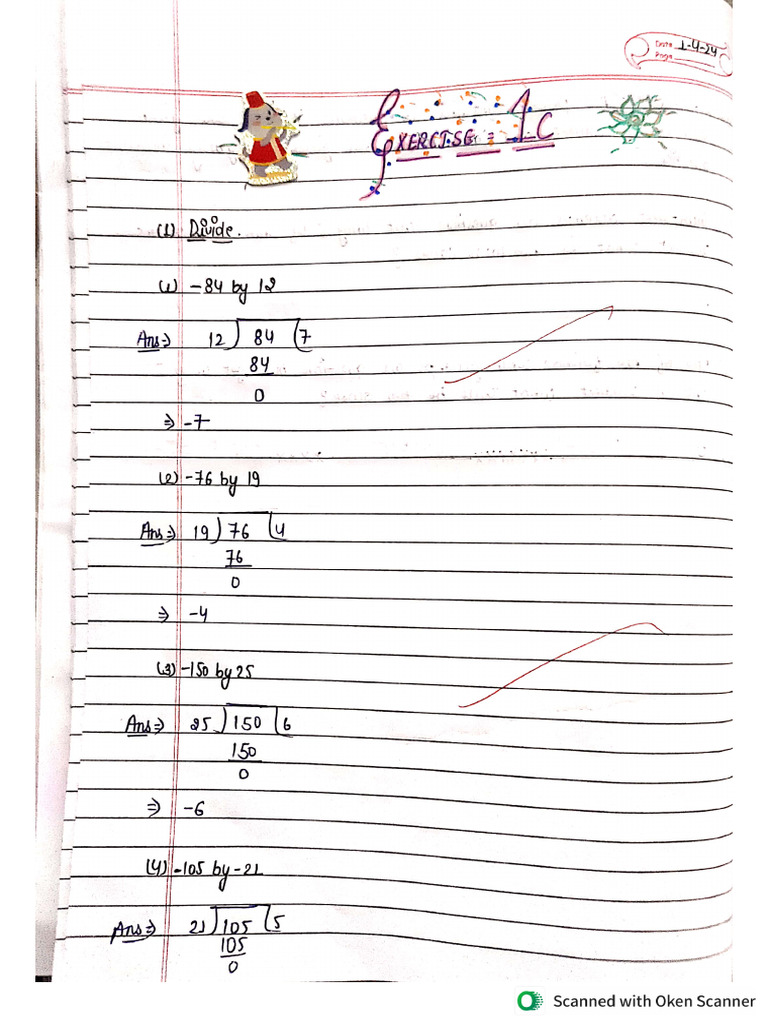 Date 1-4-24
Page
EXERCISE = 1C
(1) Divide.
(1) -84 by 12
Ans⇒ 12 ) 84 ( 7
84
0
⇒ -7
(2) -76 by 19
Ans⇒ 19 ) 76 ( 4
76
0
⇒ -4
(3) -150 by 25
Ans⇒ 25 ) 150 ( 6
150
0
⇒ -6
(4) -105 by -21
Ans⇒ 21 ) 105 ( 5
105
0
Scanned with Oken Scanner